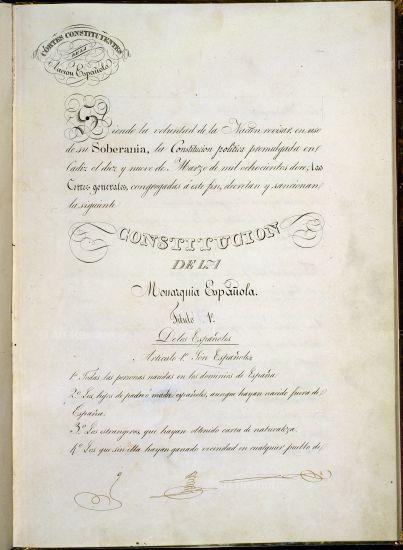 CÓRTES CONSTITUYENTES
DE LA
Nacion Española
Siendo la voluntad de la Nacion revisar, en uso
de su Soberania, la Constitucion politica promulgada en
Cadiz el diez y nueve de Marzo de mil ochocientos doce, las
Córtes generales, congregadas á este fin, decretan y sancionan
la siguiente
CONSTITUCION
DE LA
Monarquia Española.
Titulo 1º
De los Españoles
Articulo 1º Son Españoles
1º Todas las personas nacidas en los dominios de España.
2º Los hijos de padre ó madre españoles, aunque hayan nacido fuera de
España.
3º Los estrangeros que hayan obtenido carta de naturaleza.
4º Los que sin ella hayan ganado vecindad en cualquier pueblo de